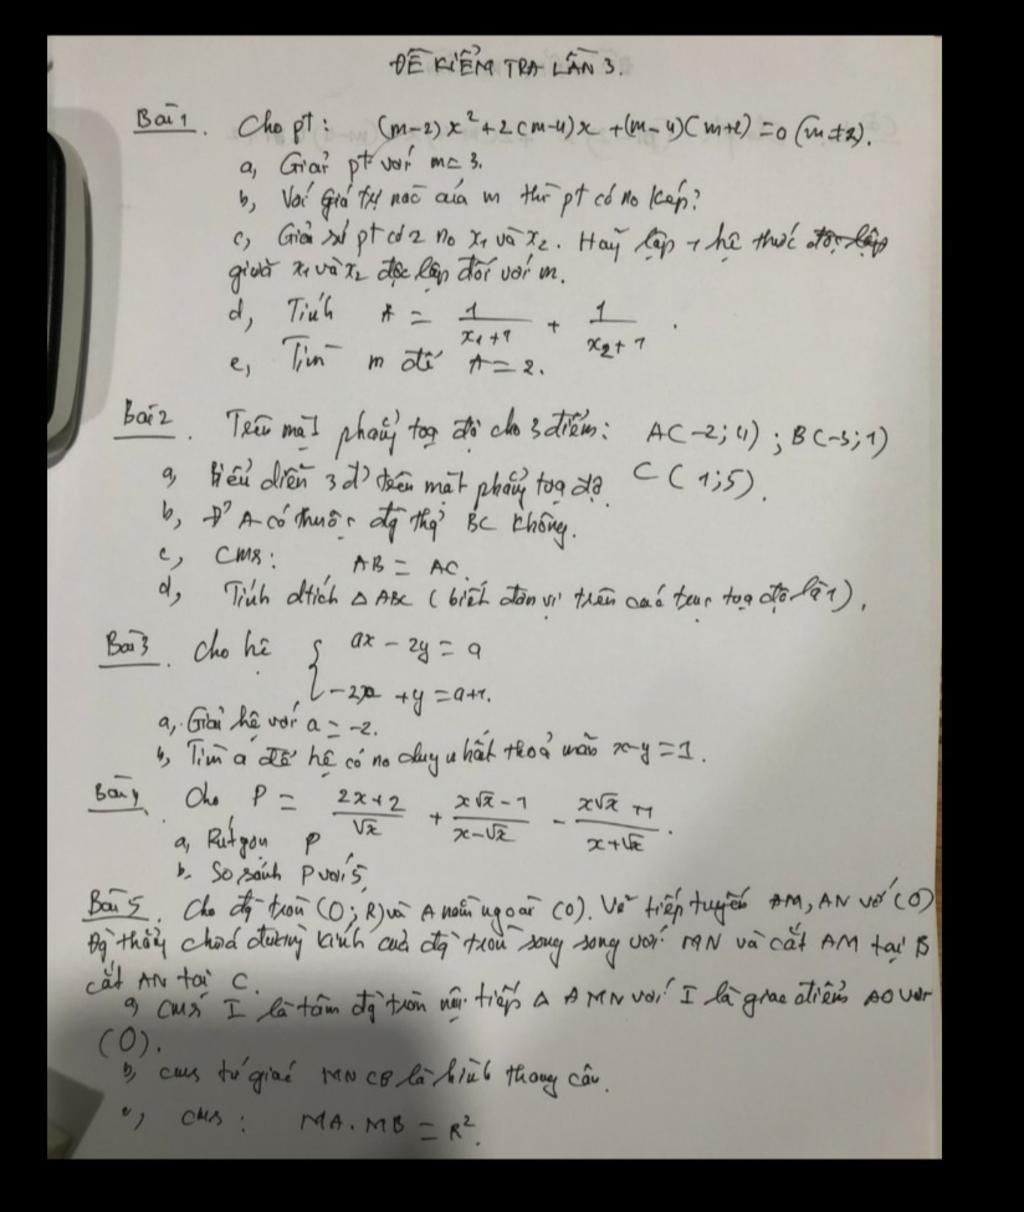 ĐỀ KIỂM TRA LẦN 3.
Bài 1. Cho pt: (m-2)x² + 2(m-4)x + (m-4)(m+2) = 0 (m ≠ 2).
a, Giải pt với m = 3.
b, Với giá trị nào của m thì pt có no kép?
c, Giả sử pt có 2 no x₁ và x₂. Hãy lập 1 hệ thức độc lập
giữa x₁ và x₂ độc lập đối với m.
d, Tính A = 1/(x₁+1) + 1/(x₂+1).
e, Tìm m để A = 2.
Bài 2. Trên mặt phẳng toạ độ cho 3 điểm: A(-2;4); B(-3;1)
C(1;5).
a, Biểu diễn 3 đ' trên mặt phẳng toạ độ.
b, Đ' A có thuộc đg thg BC không.
c, CMR: AB = AC.
d, Tính dtích △ABC (biết đơn vị trên các trục toạ độ là 1).
Bài 3. Cho hệ { ax - 2y = a
-2x + y = a+1.
a, Giải hệ với a = -2.
b, Tìm a để hệ có no duy nhất thoả mãn x-y=1.
Bài 4. Cho P = (2x+2)/√x + (x√x-1)/(x-√x) - (x√x+1)/(x+√x).
a, Rút gọn P
b. So sánh P với 5.
Bài 5. Cho đg tròn (O;R) và A nằm ngoài (O). Vẽ tiếp tuyến AM, AN với (O)
Đg thẳng chứa đường kính của đg tròn song song với MN và cắt AM tại B
cắt AN tại C.
a, CMR I là tâm đg tròn nội tiếp △AMN với I là giao điểm AO với
(O).
b, CMR tứ giác MNCB là hình thang cân.
c, CMR: MA.MB = R².